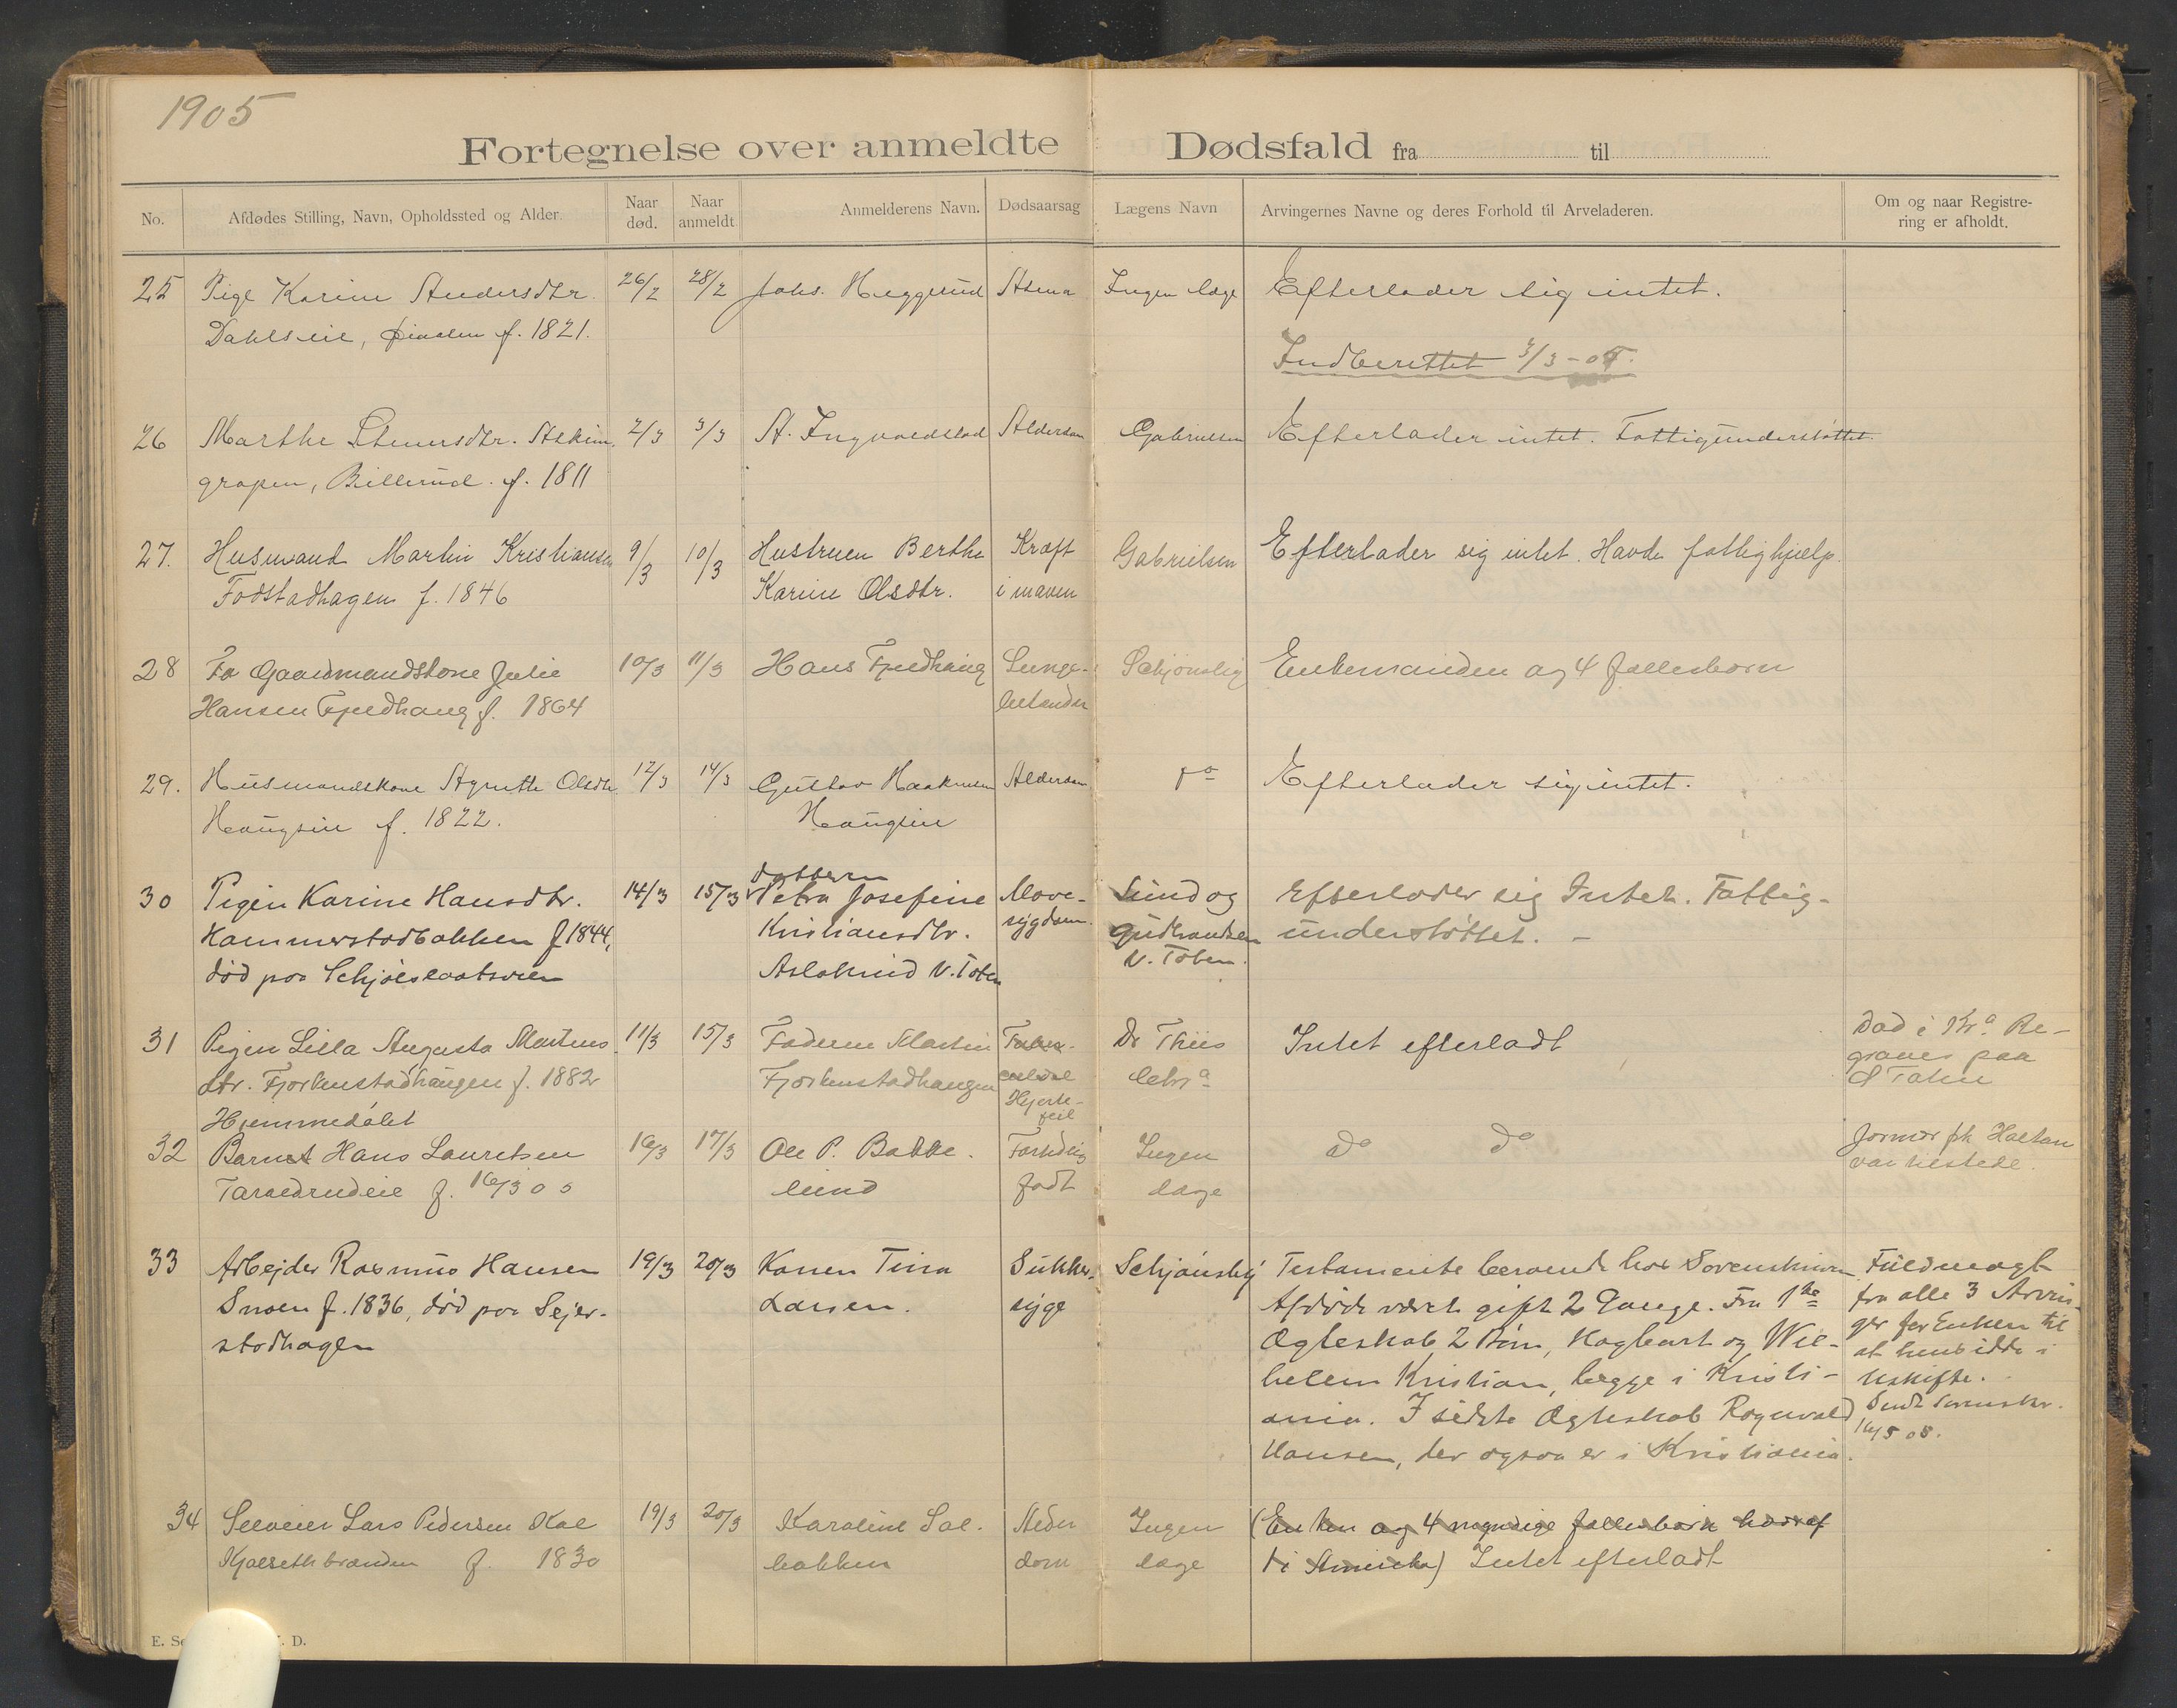 1905
Fortegnelse over anmeldte Dødsfald fra til
No. Afdødes Stilling, Navn, Opholdssted og Alder. Naar død. Naar anmeldt Anmelderens Navn. Dødsaarsag Lægens Navn Arvingernes Navne og deres Forhold til Arveladeren. Om og naar Registrering er afholdt.
25 Pige Karine Andersdtr. 26/2 28/2 Johs. Heggerud Astma Ingen læge Efterlader sig intet.
Dahlseie, f. 1821.
Indberettet 3/3-05.
26 Marthe Stenersdtr. 2/3 3/3 A. Ingvoldstad Alderdom Gabrielsen Efterlader intet. Fattigunderstøttet.
grapen, Billerud. f. 1811
27. Husmand Martin Kristiansen 9/3 10/3 Hustruen Berthe Kræft Gabrielsen Efterlader sig intet. Havde fattighjælp.
Fodstadhagen f. 1846 Karine Olsdtr. i maven
28 Fo Gaardmandskone Julie 10/3 11/3 Hans Fjeldhaug Lunge- Schjønsby Enkemanden og 4 fællesbørn
Hansen Fjeldhaug f. 1864
29. Husmandskone Agnethe Olsdtr 12/3 14/3 Gustav Haakensen Alderdom do Efterlader sig intet.
Haugeie f. 1822. Haugeie
datteren
30 Pigen Karine Hansdtr. 14/3 15/3 Petra Josefine Mave- Lund og Efterlader sig Intet. Fattig-
Hammerstadbakken f 1844, Kristiansdtr. sygdom Gudbrandsen understøttet. -
død paa Aslakrud V. Toten V. Toten.
31 Pigen Lilla Augusta Martins 11/3 15/3 Faderen Martin Dr Thiis Intet efterladt Død i Kra. Be-
dtr. Fjorkenstadhaugen f. 1882 Fjorkenstadhaugen graves paa
Hjerte-
feil
Hjemmedøbt
32 Barnet Hans Lauritsen 16/3 17/3 Ole P. Bakke. Fortidlig Ingen do do
Taraldrudeie f. 16/3 05 lund født læge var tilstede.
33 Arbejder Rasmus Hansen 19/3 20/3 Konen Tina Sukker- Schjønsby Testamente beroende hos Sorenskriveren Fuldmagt
f. 1836, død paa Sejer- Larsen. syge Afdøde været gift 2 Gange. Fra 1ste fra alle 3 Arvin-
stadhagen Ægteskab 2 Børn, Hagbart og Wil- ger for Enken til
helm Kristian, begge i Kristi- at hensidde i
ania. I sidste Ægteskab Ragnvald Uskifte.
Hansen, der ogsaa er i Kristiania. Sendt Sorenskr. 16/5 05.
34 Selveier Lars Pedersen Kol 19/3 20/3 Karoline Sol- Alder Ingen (Enken og 4 myndige fællesbørn hvoraf
f. 1830 bakken dom læge 1 i Amerika) Intet efterladt